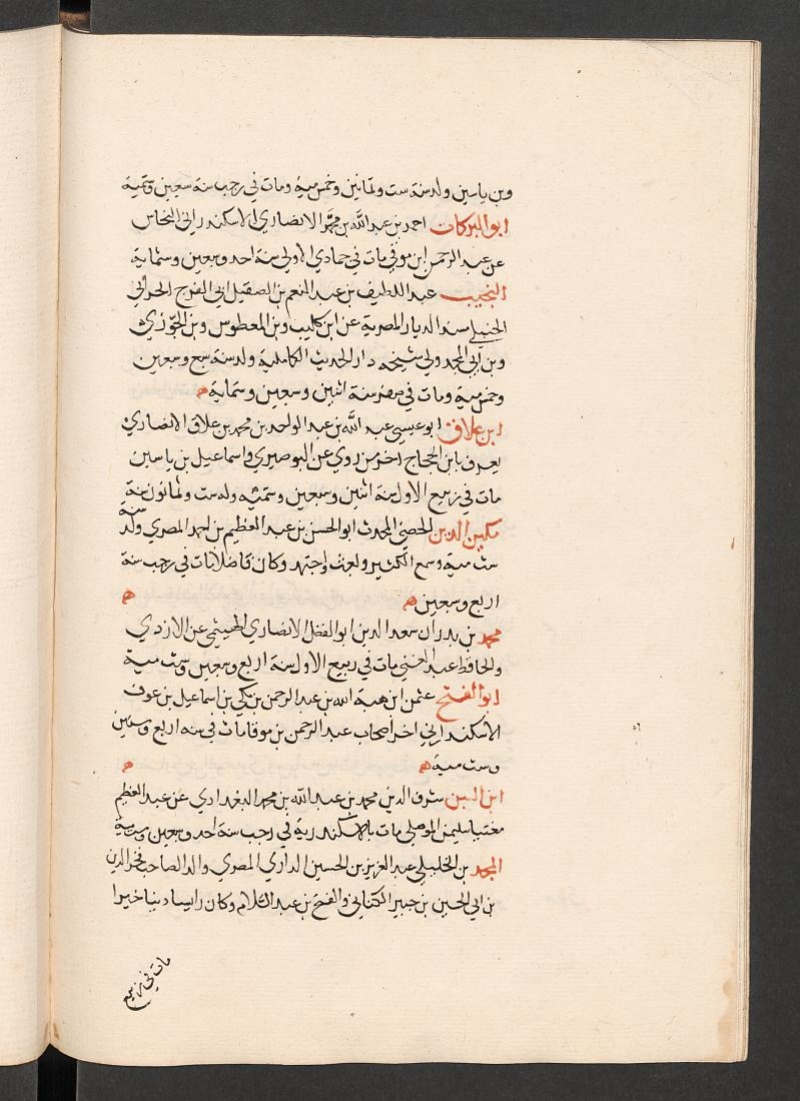 وبن ياسين ولد سنة ست وثمانين وخمس مية ومات في رجب سنة سبعين وستمية
ابو البركات احمد بن عبد الله بن محمد الانصاري الاسكندراني النحاس
عن عبد الرحمن ابن موقى مات في جمادي الاولى سنة احد وسبعين وستماية
النجيب عبد اللطيف بن عبد المنعم بن الصقيل ابي الفرج الحراني
الحنبلي مسند الديار المصرية عن ابن كليب وبن المعطوس وبن الجوزي
وبن ابي المجد ولي مشيخه دار الحديث الكاملية ولد سنة سبع وسبعين
وخمس مية ومات في صفر سنة اثنين وسبعين وستماية
ابن علاق ابو عيسى عبد الله بن عبد الواحد بن محمد بن علاق الانصاري
يعرف بابن الحجاج اخر من روي عن البوصيري واسماعيل بن ياسين
مات في ربيع الاول سنة اثنين وسبعين وستميه وله ست وثمانون سنة
مكين الدين الحصني المحدث ابو الحسن بن عبد العظيم بن احمد المصري ولد سنة
ست مية وسمع الكثير واجتهد وكان فاضلا مات في رجب سنة
اربع وسبعين
محمد بن بدران سعد الدين ابو الفضل الانصاري عن الازدي
والحافظ عبد الغني مات في ربيع الاول سنة اربع وسبعين وست مية
ابو الفتح عثمن ابن هبة الله بن عبد الرحمن بن مكي بن اسماعيل بن عوف
الاسكندراني اخر اصحاب عبد الرحمن بن موقا مات في سنه اربع وسبعين
وست مية
ابن شرف الدين محمد بن عبد الله بن محمد البغدادي عن عبد العظيم
الموصلي مات بالاسكندرية في رجب سنة احد وسبعين وست مية
المجد بن الخليلي عبد العزيز بن الحسين الداري المصري والد الصاحب فخر الدين
بن ابي الحسين بن جبير الكناني والفتح بن عبد السلام وكان رايسا دينا خيرا
مات في ربيع